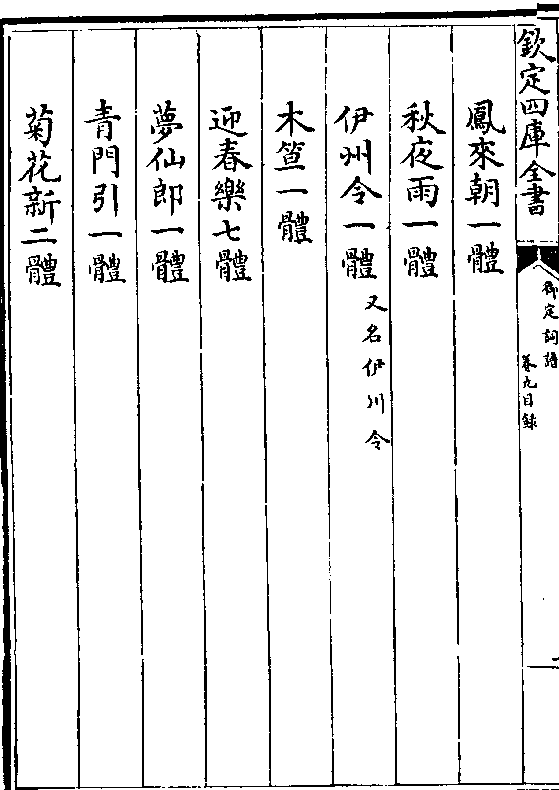 欽定四庫全書
御定詞譜
卷九目錄
鳳來朝一體
秋夜雨一體
伊州令一體 又名伊川令
木笪一體
迎春樂七體
夢仙郎一體
青門引一體
菊花新二體